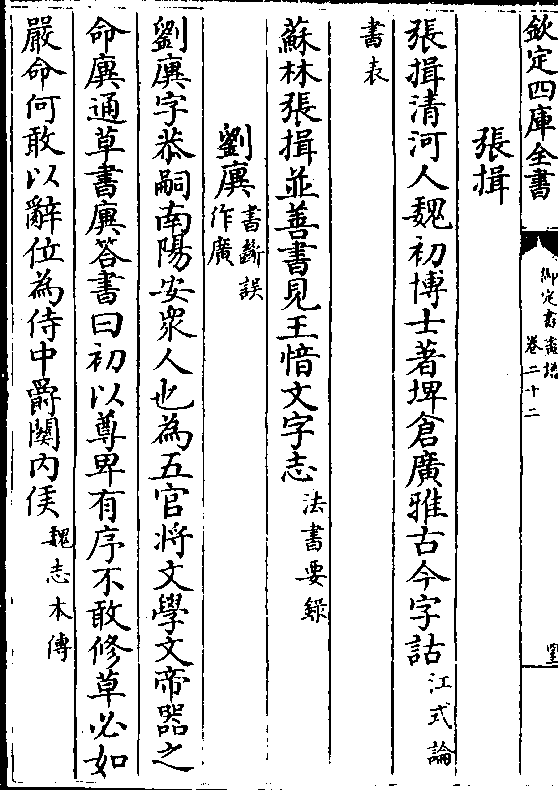 欽定四庫全書
御定書畫譜
卷二十二
張揖
張揖清河人魏初博士著埤倉廣雅古今字詁江式論
書表
蘇林張揖並善書見王愔文字志法書要錄
劉廙書斷誤
作廣
劉廙字恭嗣南陽安衆人也為五官將文學文帝器之
命廙通草書廙答書曰初以尊卑有序不敢修草必如
嚴命何敢以辭位為侍中爵關内侯魏志本傳